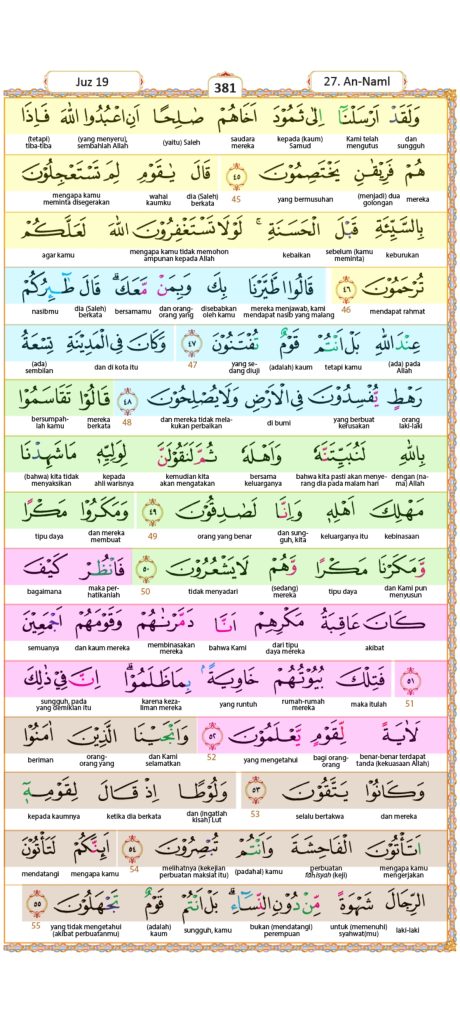 Juz 19
381
27. An-Naml
وَلَقَدْ اَرْسَلْنَآ اِلٰى ثَمُوْدَ اَخَاهُمْ صٰلِحًا اَنِ اعْبُدُوا اللّٰهَ فَاِذَا
dan sungguh Kami telah mengutus kepada (kaum) Samud saudara mereka (yaitu) Saleh (yang menyeru), sembahlah Allah (tetapi) tiba-tiba
هُمْ فَرِيْقٰنِ يَخْتَصِمُوْنَ ٤٥ قَالَ يٰقَوْمِ لِمَ تَسْتَعْجِلُوْنَ
mereka (menjadi) dua golongan yang bermusuhan 45 dia (Saleh) berkata wahai kaumku mengapa kamu meminta disegerakan
بِالسَّيِّئَةِ قَبْلَ الْحَسَنَةِۚ لَوْلَا تَسْتَغْفِرُوْنَ اللّٰهَ لَعَلَّكُمْ
keburukan sebelum (kamu meminta) kebaikan mengapa kamu tidak memohon ampunan kepada Allah agar kamu
تُرْحَمُوْنَ ٤٦ قَالُوا اطَّيَّرْنَا بِكَ وَبِمَنْ مَّعَكَۗ قَالَ طٰۤىِٕرُكُمْ
mendapat rahmat 46 mereka menjawab, kami mendapat nasib yang malang disebabkan oleh kamu dan orang-orang yang bersamamu dia (Saleh) berkata nasibmu
عِنْدَ اللّٰهِ بَلْ اَنْتُمْ قَوْمٌ تُفْتَنُوْنَ ٤٧ وَكَانَ فِى الْمَدِيْنَةِ تِسْعَةُ
(ada) pada Allah tetapi kamu (adalah) kaum yang sedang diuji 47 dan di kota itu (ada) sembilan
رَهْطٍ يُّفْسِدُوْنَ فِى الْاَرْضِ وَلَا يُصْلِحُوْنَ ٤٨ قَالُوْا تَقَاسَمُوْا
orang laki-laki yang berbuat kerusakan di bumi dan mereka tidak melakukan perbaikan 48 mereka berkata bersumpahlah kamu
بِاللّٰهِ لَنُبَيِّتَنَّهٗ وَاَهْلَهٗ ثُمَّ لَنَقُوْلَنَّ لِوَلِيِّهٖ مَا شَهِدْنَا
dengan (nama) Allah bahwa kita pasti akan menyerang dia pada malam hari bersama keluarganya kemudian kita akan mengatakan kepada ahli warisnya (bahwa) kita tidak menyaksikan
مَهْلِكَ اَهْلِهٖ وَاِنَّا لَصٰدِقُوْنَ ٤٩ وَمَكَرُوْا مَكْرًا
kebinasaan keluarganya itu dan sungguh, kita orang yang benar 49 dan mereka membuat tipu daya
وَّمَكَرْنَا مَكْرًا وَّهُمْ لَا يَشْعُرُوْنَ ٥٠ فَانْظُرْ كَيْفَ
dan Kami pun menyusun tipu daya (sedang) mereka tidak menyadari 50 maka perhatikanlah bagaimana
كَانَ عَاقِبَةُ مَكْرِهِمْ اَنَّا دَمَّرْنٰهُمْ وَقَوْمَهُمْ اَجْمَعِيْنَ
akibat dari tipu daya mereka bahwa Kami membinasakan mereka dan kaum mereka semuanya
٥١ فَتِلْكَ بُيُوْتُهُمْ خَاوِيَةً ۢبِمَا ظَلَمُوْاۗ اِنَّ فِيْ ذٰلِكَ
51 maka itulah rumah-rumah mereka yang runtuh karena kezaliman mereka sungguh, pada yang demikian itu
لَاٰيَةً لِّقَوْمٍ يَّعْلَمُوْنَ ٥٢ وَاَنْجَيْنَا الَّذِيْنَ اٰمَنُوْا
benar-benar terdapat tanda (kekuasaan Allah) bagi orang-orang yang mengetahui 52 dan Kami selamatkan orang-orang yang beriman
وَكَانُوْا يَتَّقُوْنَ ٥٣ وَلُوْطًا اِذْ قَالَ لِقَوْمِهٖٓ
dan mereka selalu bertakwa 53 dan (ingatlah kisah) Lut ketika dia berkata kepada kaumnya
اَتَأْتُوْنَ الْفَاحِشَةَ وَاَنْتُمْ تُبْصِرُوْنَ ٥٤ اَىِٕنَّكُمْ لَتَأْتُوْنَ
mengapa kamu mengerjakan perbuatan fāḥisyah (keji) (padahal) kamu melihatnya (kekejian perbuatan maksiat itu) 54 mengapa kamu mendatangi
الرِّجَالَ شَهْوَةً مِّنْ دُوْنِ النِّسَاۤءِۗ بَلْ اَنْتُمْ قَوْمٌ تَجْهَلُوْنَ ٥٥
laki-laki untuk (memenuhi) syahwat(mu) bukan (mendatangi) perempuan sungguh, kamu (adalah) kaum yang tidak mengetahui (akibat perbuatanmu) 55